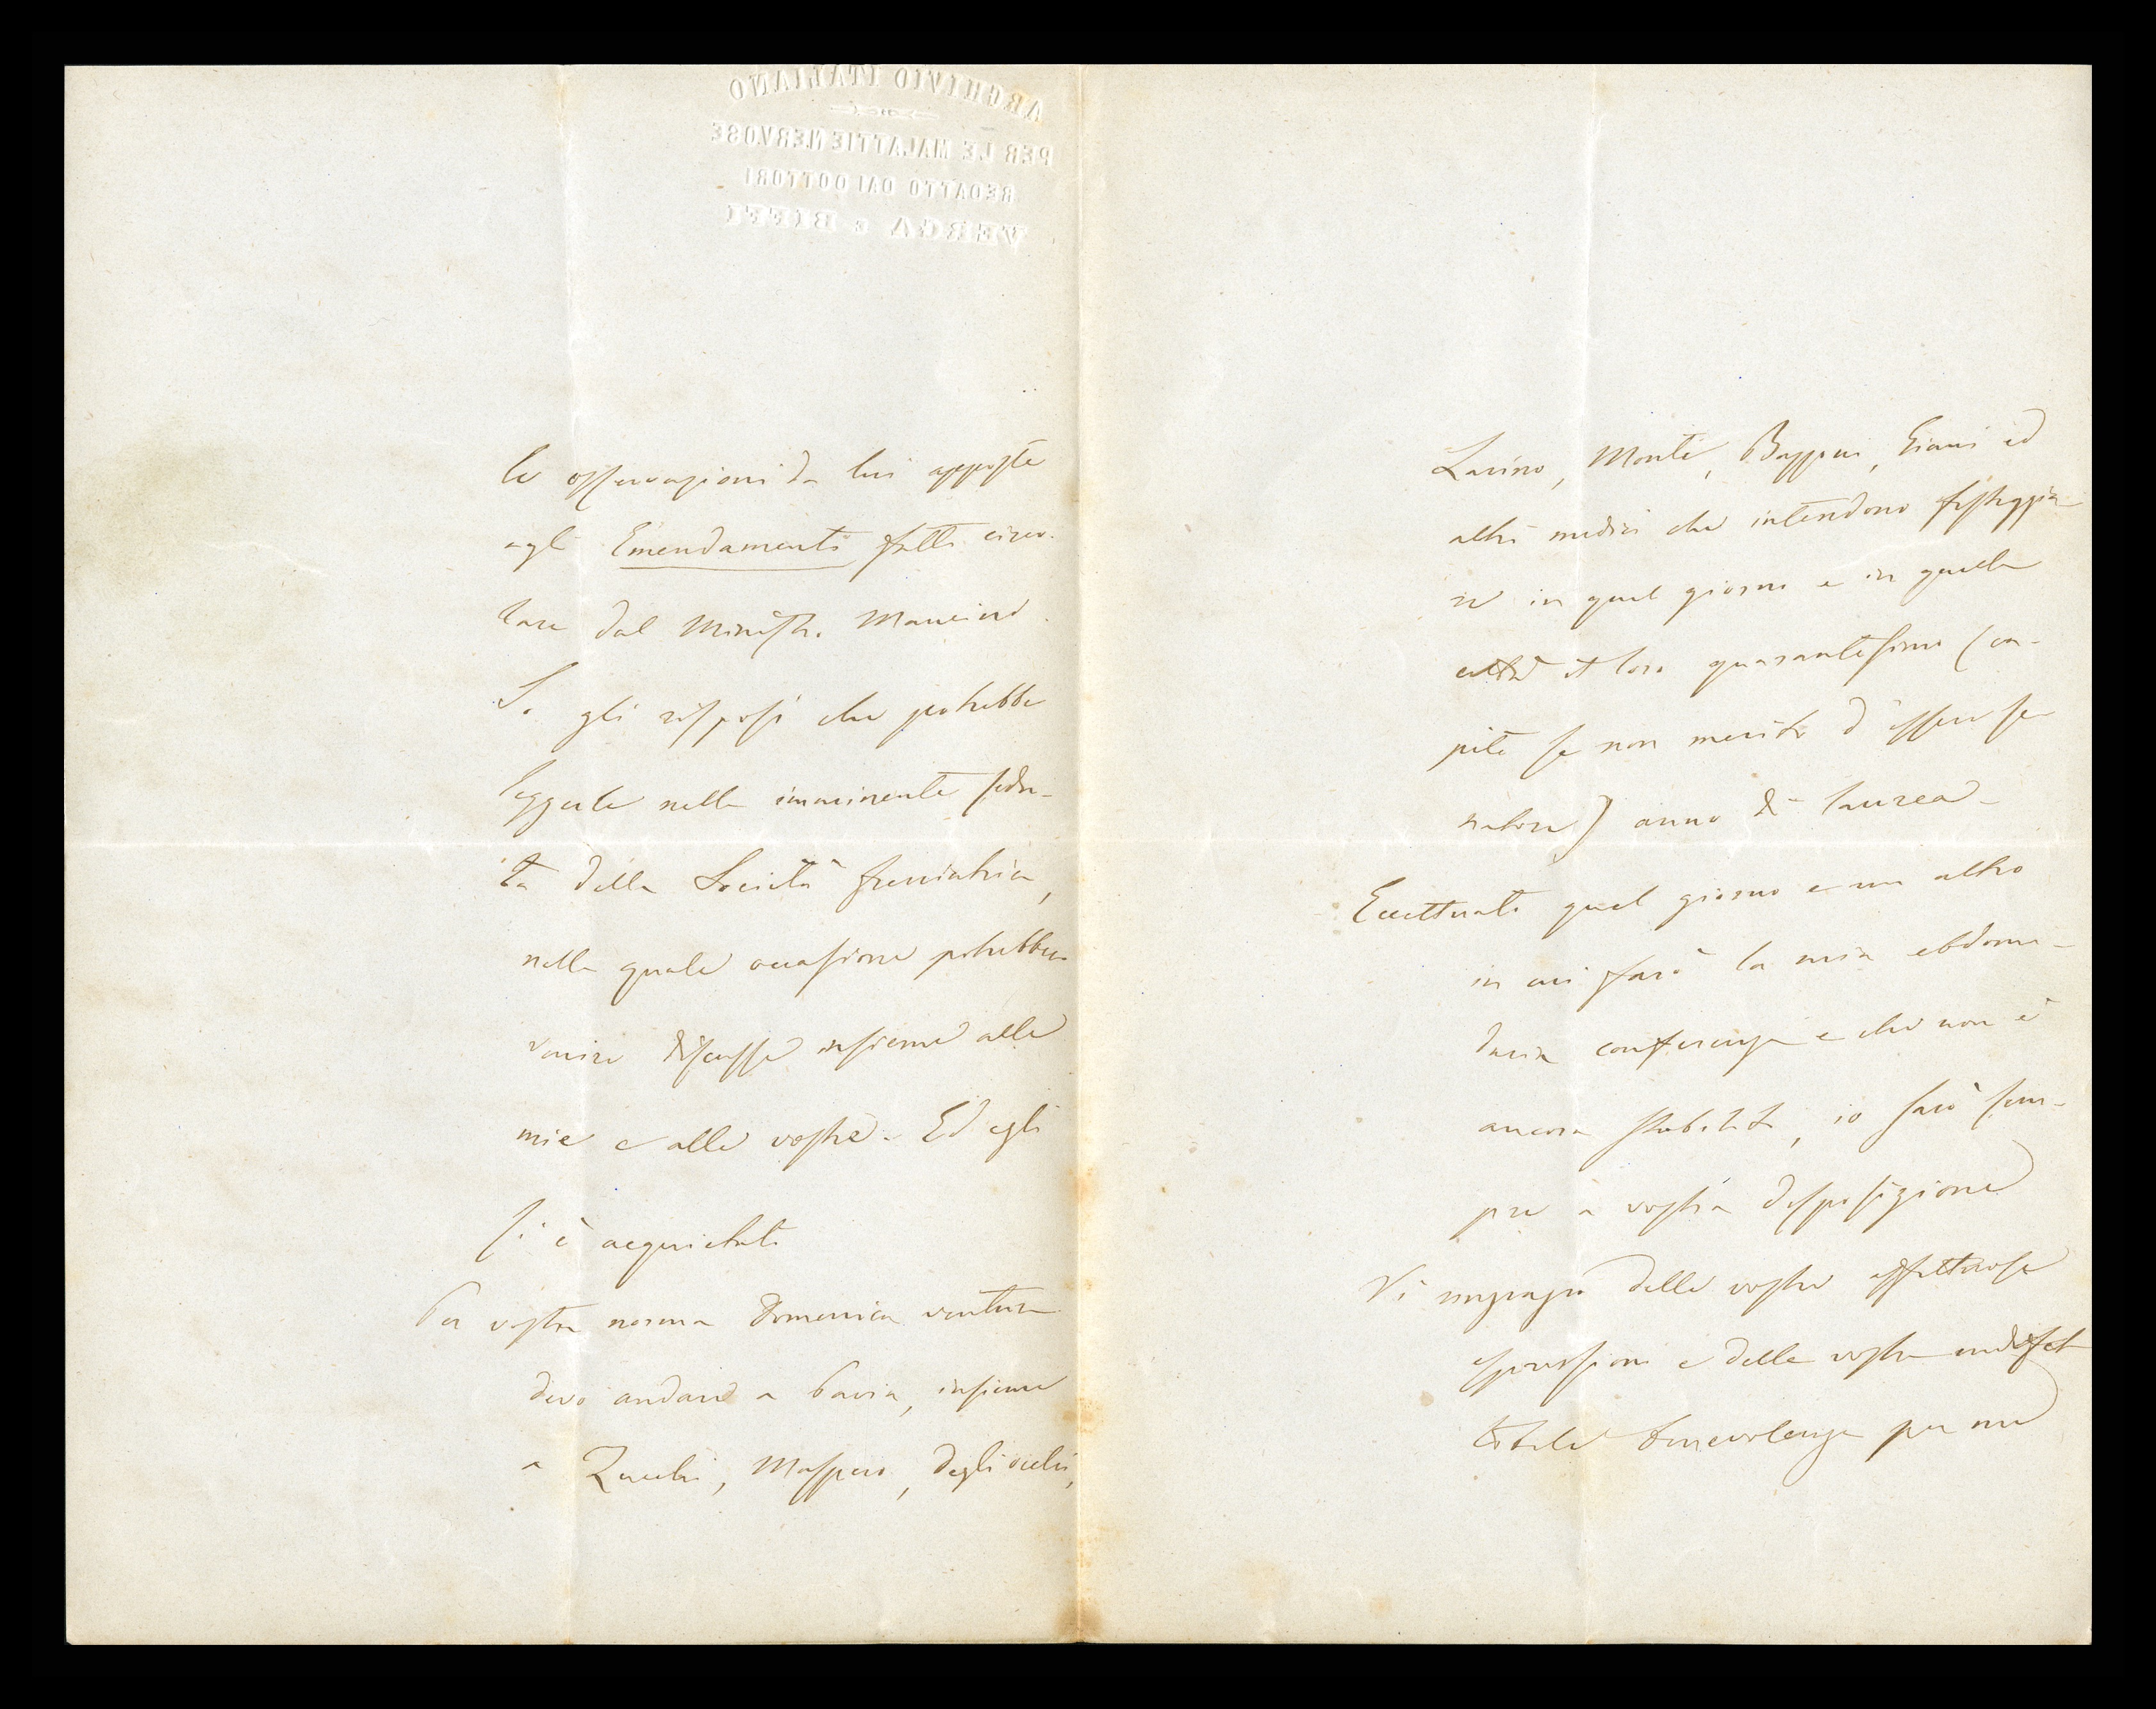 ARCHIVIO ITALIANO
PER LE MALATTIE NERVOSE
REDATTO DAI DOTTORI
VERGA E BIFFI
le osservazioni da lui apposte
agli Emendamenti fatti circo-
lare dal Ministro Mancini.
Io gli risposi che potrebbe
leggerle nella imminente sedu-
ta della Società freniatrica,
nella quale occasione potrebbero
venire discusse insieme alle
mie e alle vostre. Ed egli
si è acquietato
Per vostra norma Domenica ventura
devo andare a Pavia, insieme
a Zucchi, Maspero, Degli occhi,
Monti, ed
altri medici che intendono festeggia
re in quel giorno e in quella
città il loro quarantesimo (ca-
pite se non merito d'essere se
natore) anno di laurea-
Eccettuato quel giorno e un altro
in cui farò la mia ebdoma-
daria conferenza e che non è
ancora stabilito, io sarò sem-
pre a vostra disposizione
Vi ringrazio delle vostre affettuose
espressioni e della vostra indefet
tibile benevolenza per me